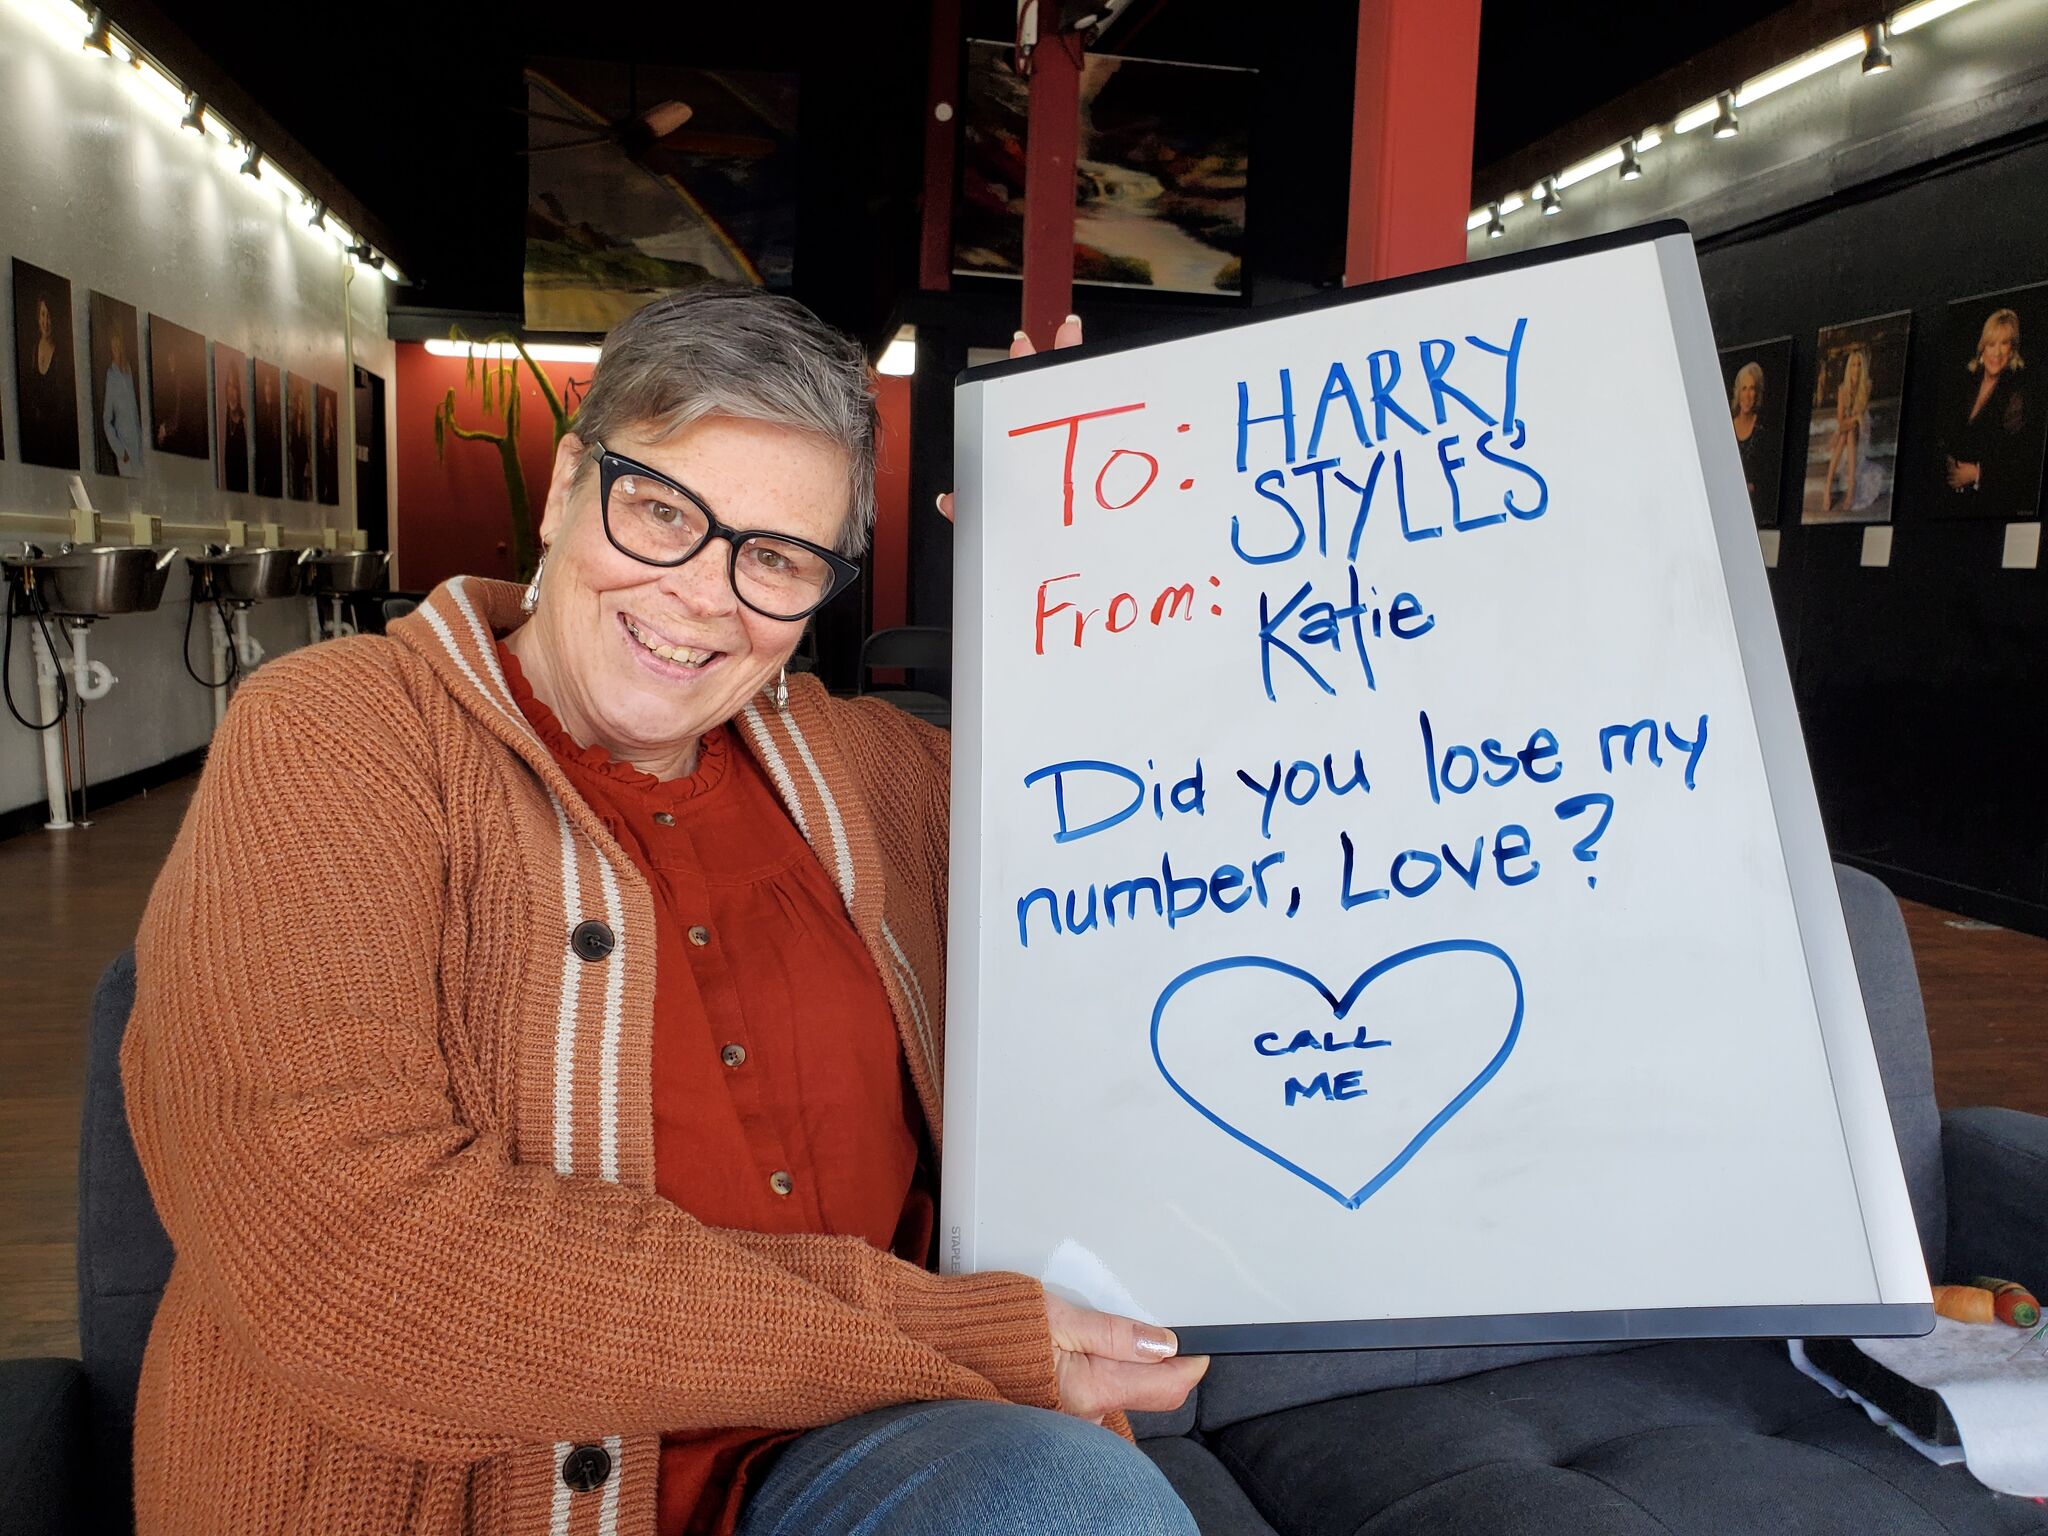 To: HARRY
STYLES
From: Katie
Did you lose my
number, Love?
CALL
ME
STAPLES